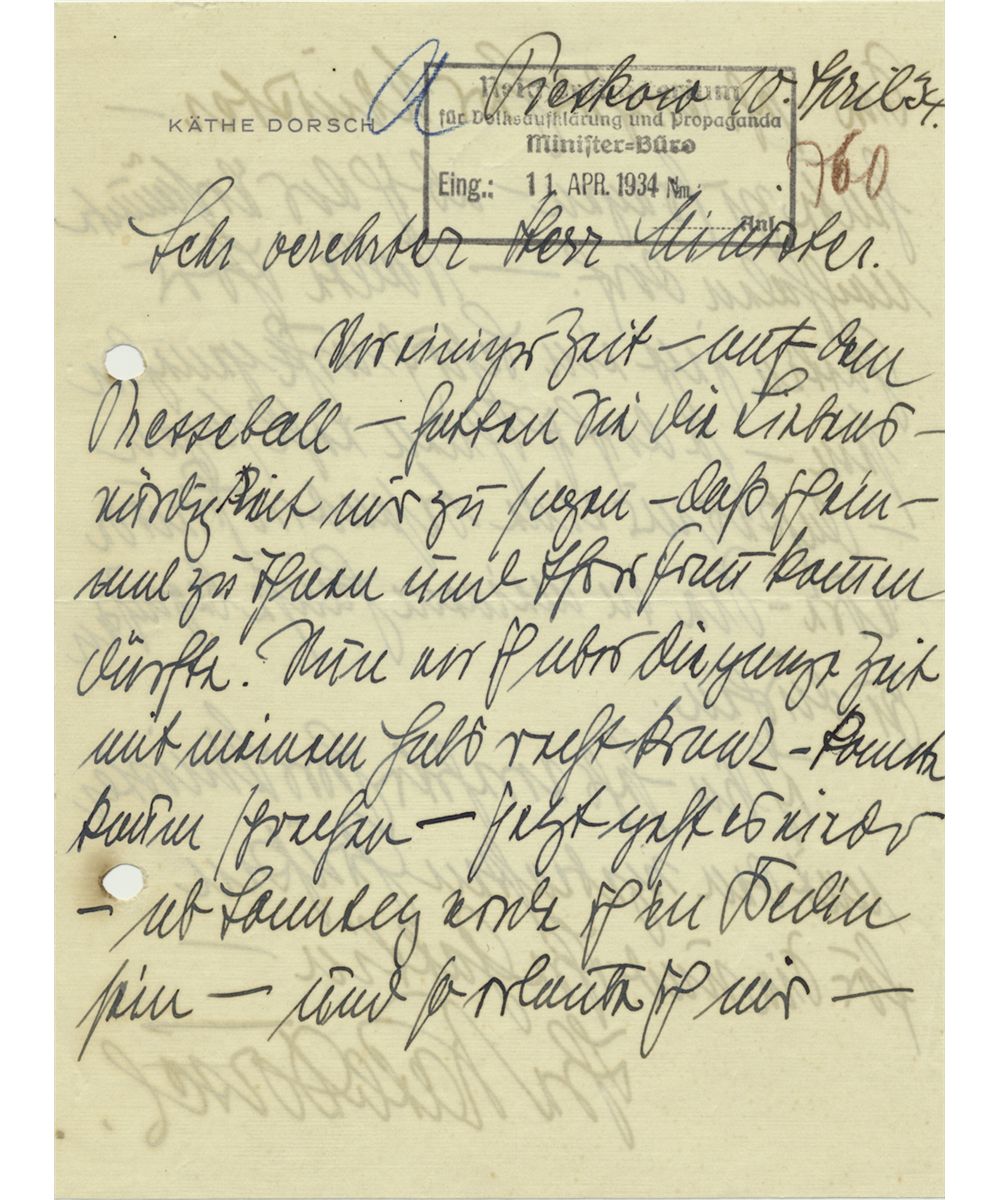 KÄTHE DORSCH
Pieskow 10. April 34.
Reichsministerium
für Volksaufklärung und Propaganda
Minister-Büro
Eing.: 11. APR. 1934 Nm.
Anl.
760
Sehr verehrter Herr Minister.
Vor einiger Zeit – auf dem
Presseball – hatten Sie die Liebens-
würdigkeit mir zu sagen – daß ich ein-
mal zu Ihnen und Ihrer Frau kommen
dürfte. Nun war ich aber die ganze Zeit
mit meinem Hals recht krank – konnte
kaum sprechen – jetzt geht es wieder
– ab Sonntag werde ich in Berlin
sein – und so erlaube ich mir –